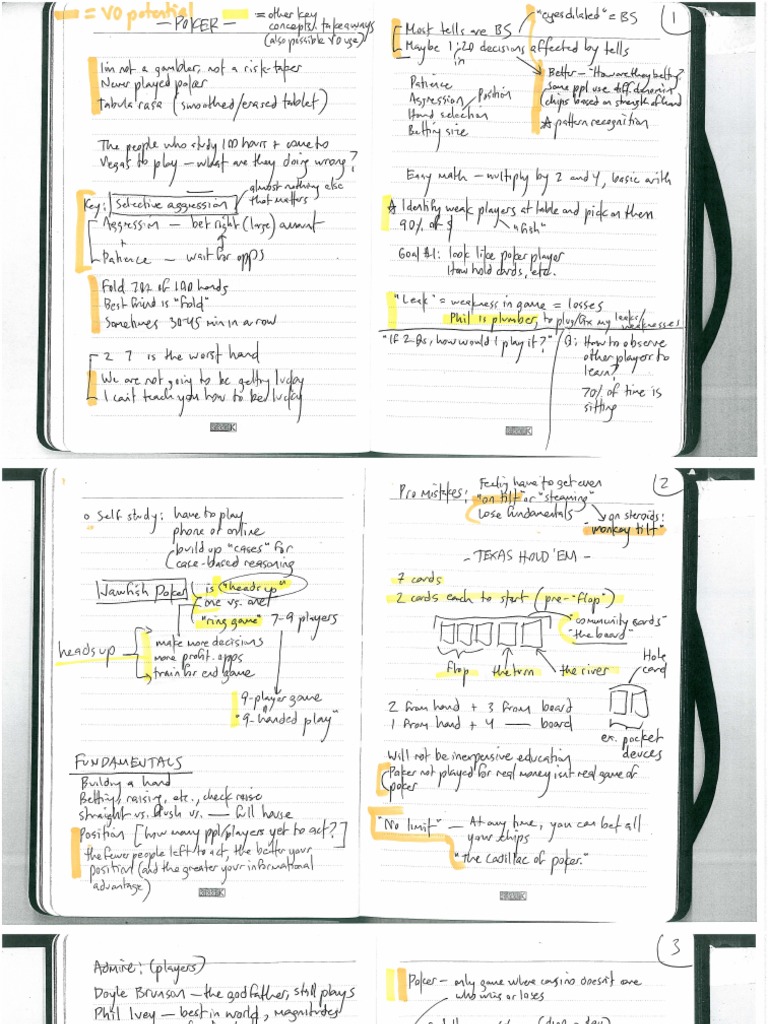 = VO potential
— POKER —
= other key
concepts, takeaways
(also possible VO use)
I'm not a gambler, not a risk-taker
Never played poker
Tabula rasa (smoothed/erased tablet)
The people who study 100 hours + come to
Vegas to play — what are they doing wrong?
almost nothing else
that matters
Key: Selective aggression
Aggression — bet right (large) amount
+
Patience — wait for opps
Fold 70 of 100 hands
Best friend is "fold"
Sometimes 30-45 min in a row
2 7 is the worst hand
We are not going to be getting lucky
I can't teach you how to be lucky
1
"eyes dilated" = BS
Most tells are BS
Maybe 1:20 decisions affected by tells
in
Better — "How are they betting?"
some ppl use diff. denomin.
(chips based on strength of hand
☆ pattern recognition
Patience
Aggression
Position
Hand selection
Betting size
Easy math — multiply by 2 and 4, basic with
☆ Identify weak players at table and pick on them
90% of $
"fish"
Goal #1: look like poker player
How hold cards, etc.
"Leak" = weakness in game = losses
Phil is plumber, to plug/fix my leaks/
weaknesses
"If 2 8s, how would I play it?"
Q: How to observe
other players to
learn?
70% of time is
sitting
o Self study: have to play
phone or online
build up "cases" for
case-based reasoning
Hawrish Poker
is "heads up"
one vs. one
"ring game" 7-9 players
heads up
make more decisions
more profit. opps
train for end game
9-player game
"9-handed play"
FUNDAMENTALS
Building a hand
Betting, raising, etc., check raise
straight vs. flush vs. — full house
Position [how many ppl/players yet to act?]
the fewer people left to act, the better your
position (and the greater your informational
advantage)
2
Pro mistakes:
Feeling have to get even
"on tilt" or "steaming"
Lose fundamentals
on steroids:
"monkey tilt"
— TEXAS HOLD 'EM —
7 cards
2 cards each to start (pre-"flop")
"community cards"
"the board"
flop
the turn
the river
Hole
card
2 from hand + 3 from board
1 from hand + 4 — board
ex. pocket
deuces
Will not be inexpensive education
Poker not played for real money isn't real game of
poker
"No limit" — At any time, you can bet all
your chips
"the Cadillac of poker."
Admire: (players)
Doyle Brunson — the godfather, still plays
Phil Ivey — best in world, magnitudes
3
Poker — only game where casino doesn't care
who wins or loses